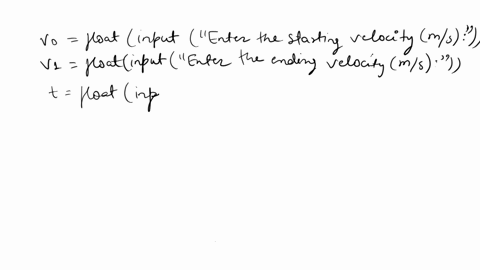 v0 = float (input ("Enter the starting velocity (m/s):"))
v1 = float(input("Enter the ending velocity (m/s)."))
t = float (inp